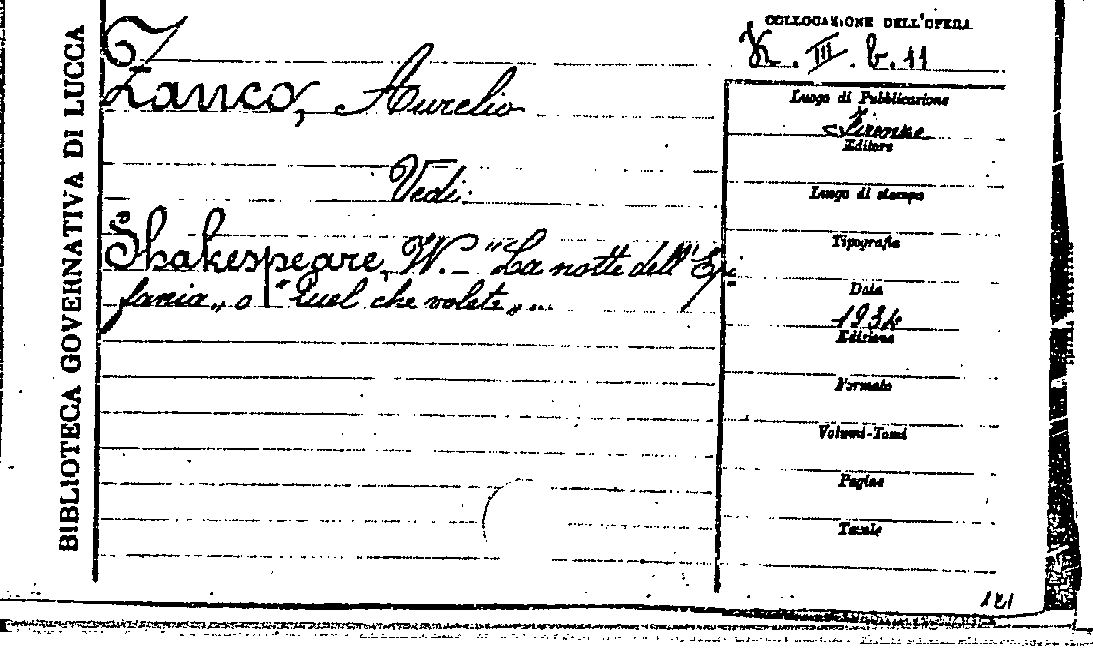 BIBLIOTECA GOVERNATIVA DI LUCCA
Zanco, Aurelio
Vedi:
Shakespeare, W. - "La notte dell'Epi
fania„ o "Quel che volete„...
COLLOCAZIONE DELL'OPERA
X. III. b. 11
Luogo di Pubblicazione
Firenze
Editore
Luogo di stampa
Tipografia
Data
1934
Edizione
Formato
Volumi-Tomi
Pagine
Tavole
121